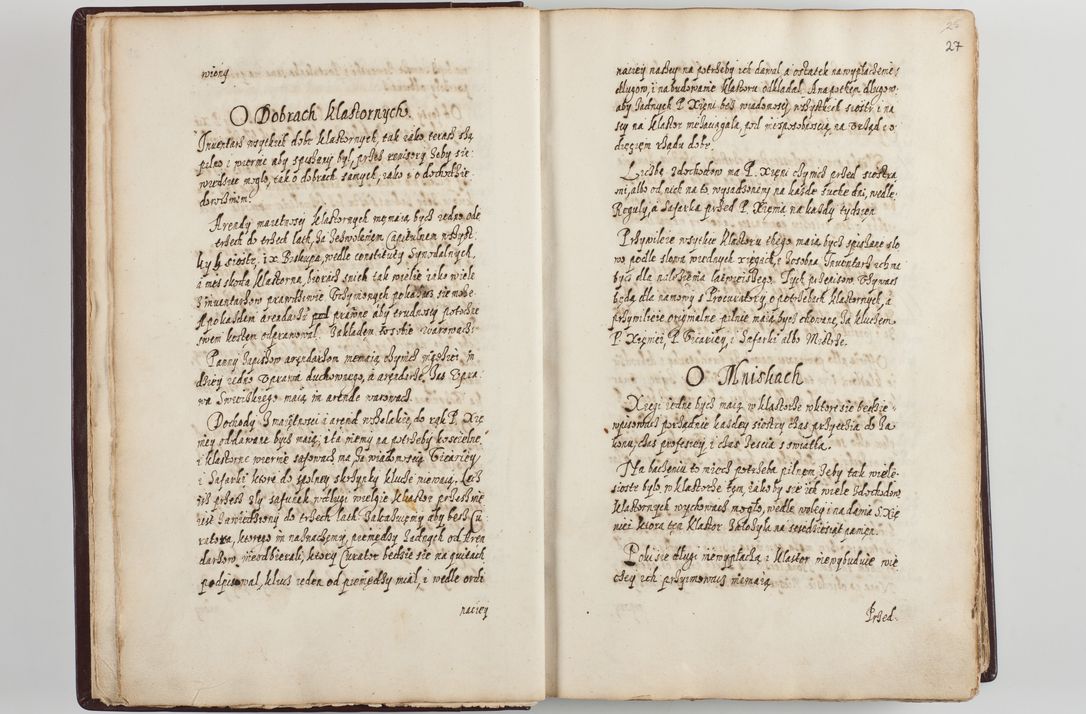 wiony
O Dobrach klastornych.
Inventarz wszytkich dobr klastornych, tak iako teraz są,
pilno i wiernie aby spisany był, przez revisory żeby sie
wiedzieć mogło, tak o dobrach samych, iako i o dochodzie
dorocznym.
Arendy maietnosci klastornych niemaią bydz iedno ode
trzech do trzech lath, za zezwoleniem Capitulnem wszyst:
kych siostr. i X. Biskupa, wedle constituty Synodalnych,
a niez skodą klastorną, biorącz snich tak wielie iako wiele
z inventarzow prawdziwie uczynionych pokazacz sie może
A pokazdem arendarzu prawne aby trudnosci potoczne
swem kosztem odprawował. Zakładem to sobie warowacz:
Panny zapisow arendarzom niemaią czynicz inszich, in
dziey iedno Uprawa duchownego, a arendarze zas Upra
wa Swieckiego maią in arende warowacz.
Dochody z maiętnosci i arend wszelakie, do rąk P. Xię
niey oddawane bydz maią, i ta niemy na potrzeby koscielne,
i klastorne wiernie safowacz ma za wiadomoscią Vicariey
i Safarki ktore do spolney skrzynky klucze miewaią. Lecz
iż przesz zly safunek wdlugi wielgie klastor przeszenie
iest zawiedzony do trzech lath zakazuiemy aby besz Cu
ratora, ktorego im naznaczemy, pieniędzy żadnych od Aren
darzow nieodbierali, ktory Curator bedzie sie na quitach
podpisował, klucz ieden od pieniędzy miał, i wedle ordi
naciey
27
naciey naszey na potrzeby ich dawal a ostatek na wyplacenie
dlugow, i na budowanie klastoru odkladal. A napotem dlugow,
aby żadnych P. Xieni bes wiadomosci wszystkich siostr i na
szey na klastor niezaciągała, pod niesposobnoscią, na Urząd i o
dięciem rządu dobr.
Liczbę z dochodow ma P. Xięni czynicz przed siostra
mi, albo od nich na to wysadzonemi na każde suche dni, wedle
Reguły, a Safarka przed P. Xięnią na kazdy tydzien
Przywileie wszytkie klastoru thego maią bydz spisane slo
wo podle slowa wiednych xięgach, i zosobna, Inventarz ich ma
bydz dla nalezienia latwieiszego. Tych przepisow Uzywacz
będą dla namowy s Procuratory o potrzebach klastornych, a
przywileie orginalne pilnie maią bydz chowane, za kluczem
P. Xięniei, P. Vicariey, i Safarki albo Mistrze.
O Mniskach
Xięgi iedne bydz maią w klastorze wktore sie będzie
wpisowacz porządnie kazdey siostry czas przyęcia do za
konu, czas professiey, i czas zescia s swiatha.
Na baczeniu to miecz potrzeba pilnem, żeby tak wiele
siostr bylo w klastorze tem, iakoby sie ich wiele z dochodow
klastornych wychowacz mogło, wedle woley i nadania S. Xię
niei ktora ten klastor założyla na sesczdziesiąt panien.
Poki sie dlugi niewypłaczą i klastor niewybuduie wię
czey ich przyimowacz niemaią
Przed